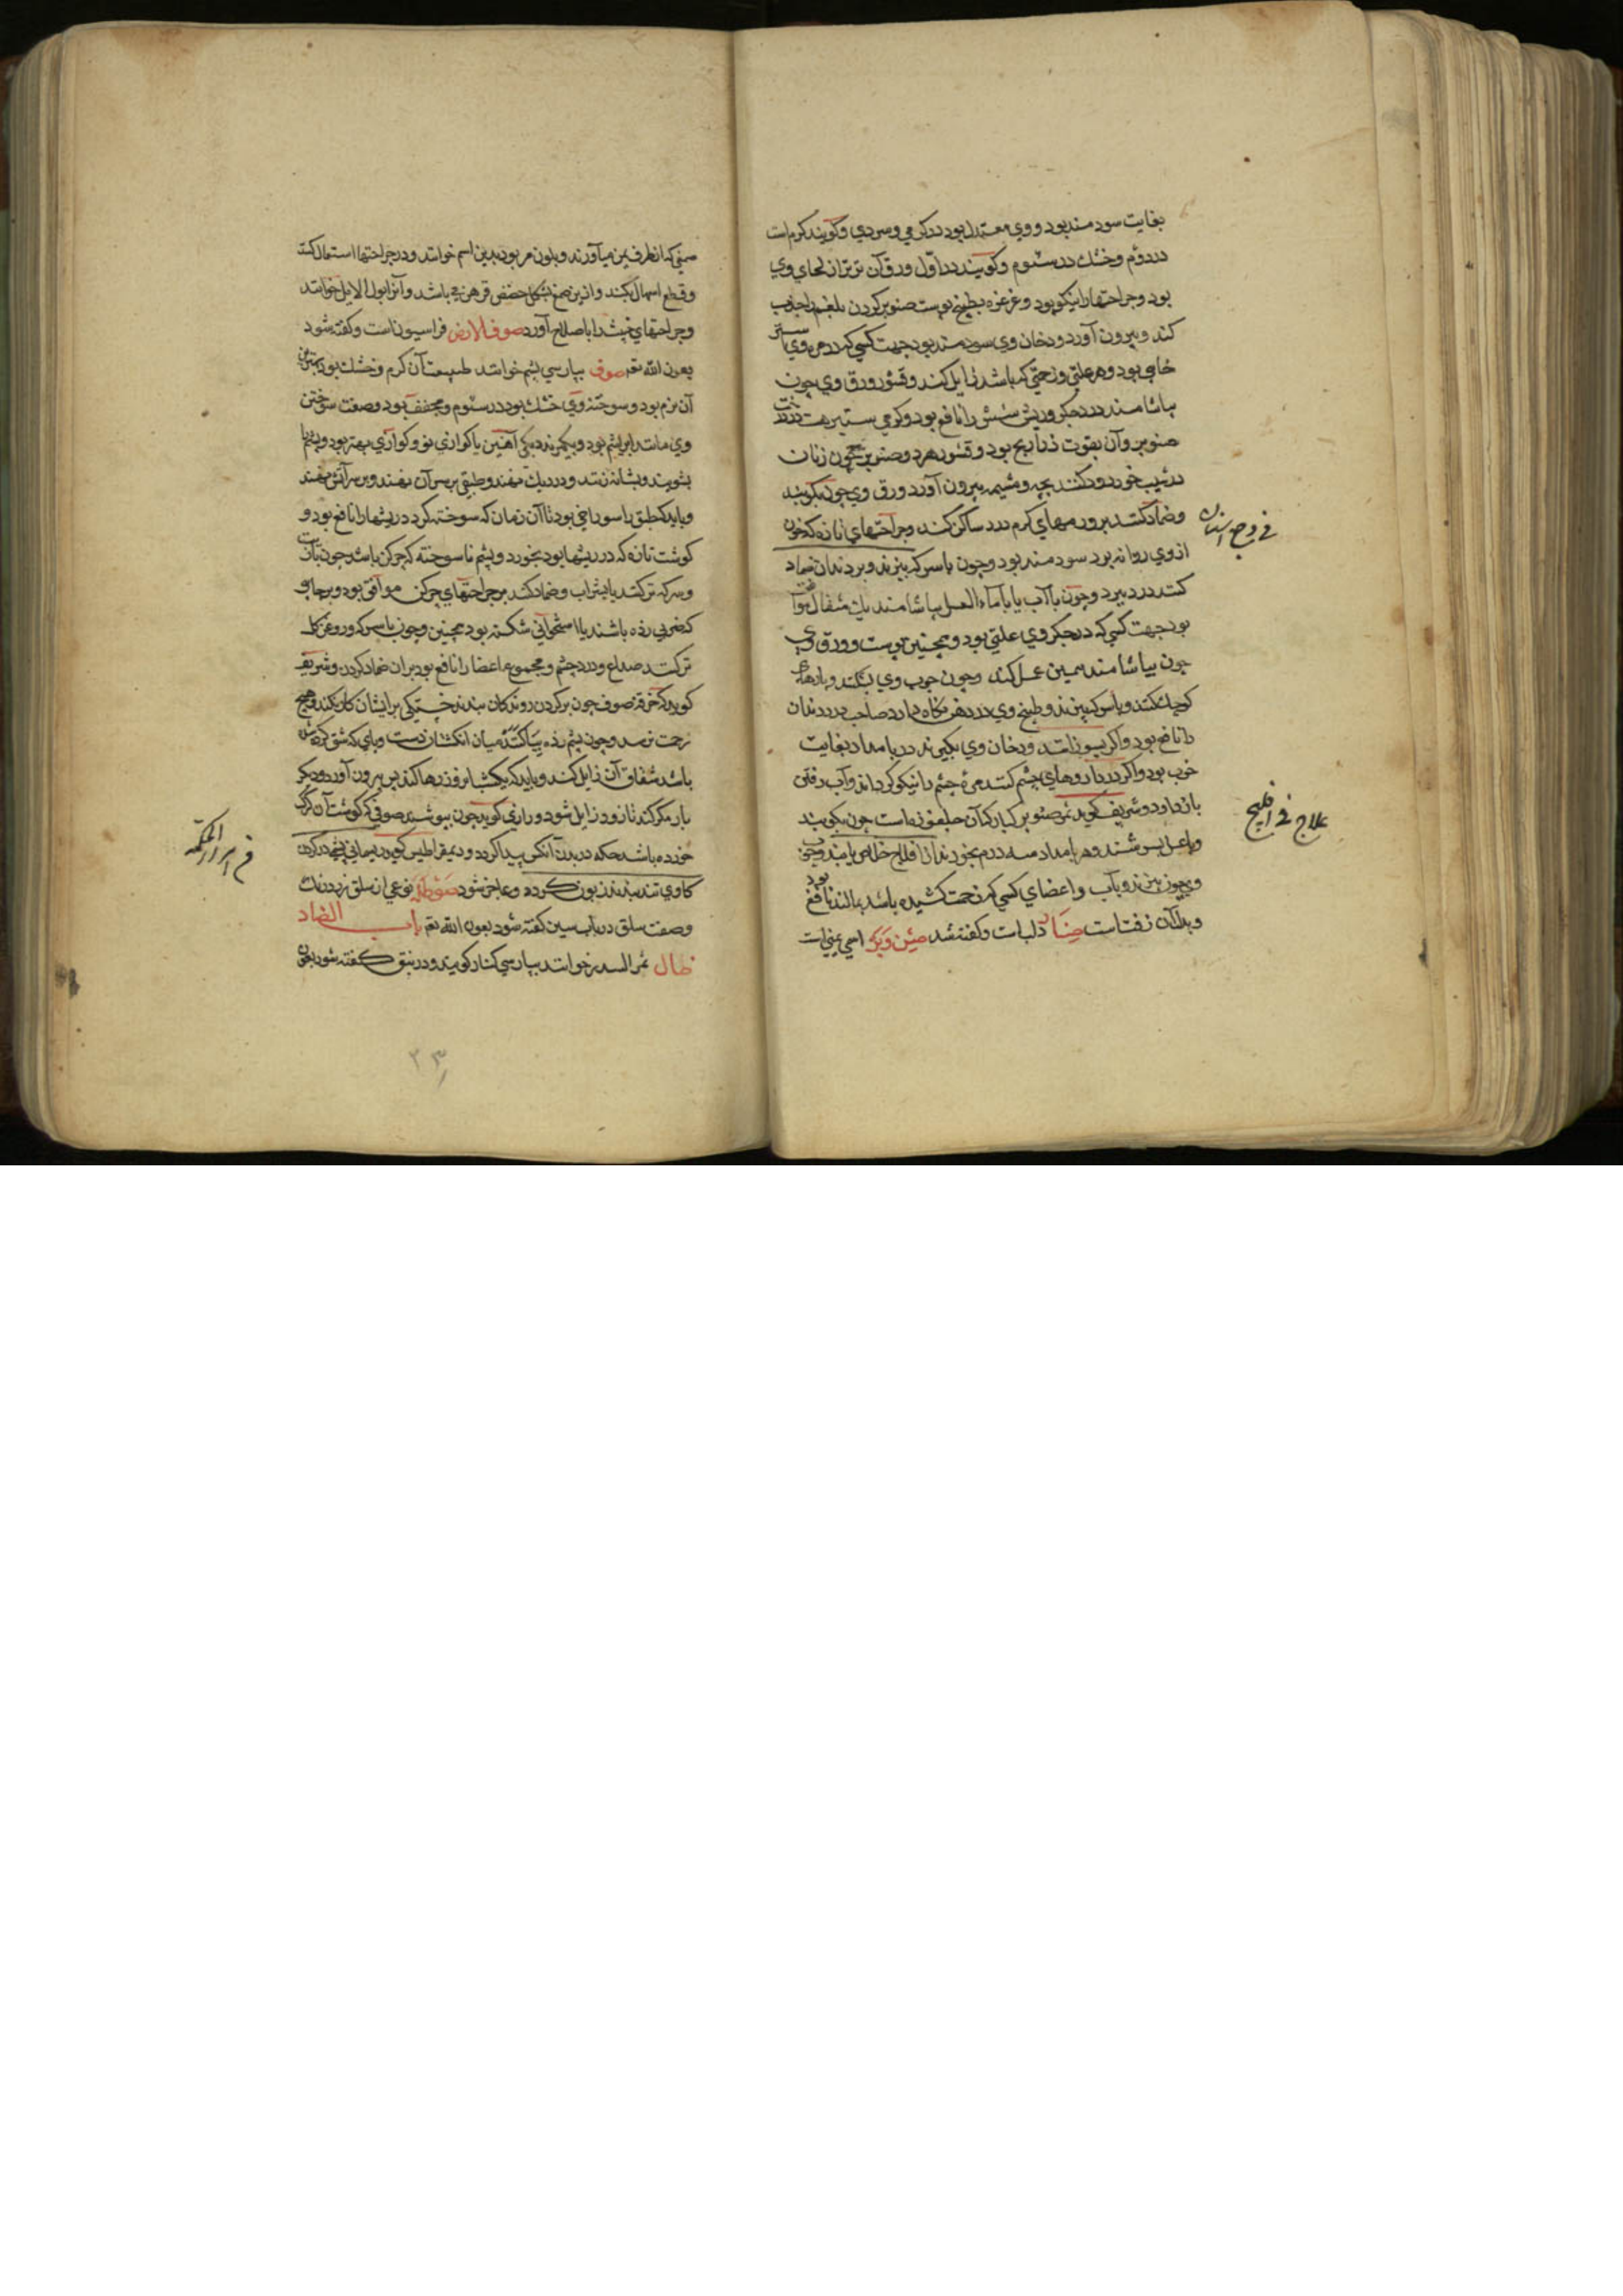 بغایت سودمند بود و وی معتدل بود در گرمی و سردی و گویند گرم است
در دوم و خشک در سئوم و گویند در اول ورق آن تر تر از لحای وی
بود و جراحتها را نیکو بود و غرغره بطبیخ پوست صنوبر کردن بلغم را جذب
کند و بیرون آورد و دخان وی سودمند بود جهت کسی که در مر وی
خامی بود و هر علتی و زحمتی که باشد زایل کند و قشور ورق وی چون
بیاشامند درد جگر و ریش شش را نافع بود و کرمی ستبر هست در
صنوبر و آن بقوت ذراریح بود و قشور هر دو صنوبر چون زنان
در شیب خود دود کنند بچه و مشیمه بیرون آورد ورق وی چون بکوبند
و ضماد کنند بر ورمهای گرم درد ساکن کند و جراحتهای تازه که خون
از وی روانه بود سودمند بود و چون با سرکه بپزند و بر دندان ضماد
کنند درد ببرد و چون با آب یا با ماء العسل بیاشامند یک مثقال
بود جهت کسی که در جگر وی علتی بود و همچنین پوست و ورق وی
چون بیاشامند همین عمل کند و چون چوب وی بشکنند و پارهای
کوچک کنند و با سرکه بپزند و طبیخ وی در دهن نگاه دارد صاحب درد دندان
را نافع بود و اگر بسوزانند و دخان وی بگیرند در بامداد بغایت
خوب بود و اگر در داروهای چشم کنند مرهٔ چشم را نیکو گرداند و آب رفتن
باز دارد و شریف گوید ثمر صنوبر کبار که آن جلغوزه است چون بکوبند
و با عسل بسرشند و هر بامداد سه درم بخورند از افلاج خلاص یابند
و چون بپزند و بآب و اعضای کسی که زحمت کشیده باشد بمالند نافع بود
و بدل آن زفت است صنار دلب است و گفته شد صئین وبر اسمی است
فی وجع اسنان
علاج فی افلیج
صمغی که از طرف یمن میآورند و بلون مر بود بدین اسم خوانند و در جراحتها استعمال کنند
و قطع اسهال بکند و ازین صمغ بشکل حضض قرهن می باشد و آنرا بول الابل خوانند
و جراحتهای خبیث را باصلاح آورد صوف الارض فراسیون است و گفته شود
بعون الله تع صوف بپارسی پشم خوانند طبیعت آن گرم و خشک بود بهترین
آن نرم بود و سوخته وی خشک بود در سئوم و مجفف بود و صفت سوختن
وی مانند ابریشم بود و بگیرند دیگی آهنین یا کوازی نو و کوازی بهتر بود و پشم را
بشویند و بشانه زنند و در دیگ نهند و طبقی بر سر آن نهند و بر سر آتش نهند
و باید که طبق را سوراخی بود تا آن زمان که سوخته گردد ریشها را نافع بود و
گوشت تازه که در ریشها بود بخورد و پشم ناسوخته که چرکن باشد چون بآب
و سرکه تر کنند یا بشراب و ضماد کنند بر جراحتهای چرکن موافق بود و بر جایی
که ضربی زده باشند یا استخوانی شکسته بود همچنین و چون با سرکه و روغن گل
تر کنند صداع و درد چشم و مجموع اعضا را نافع بود بران ضماد کردن و شریف
گوید که خرقه صوف چون بر گردن روندگان بندند خستگی بر ایشان کار نکند و هیچ
زحمت نرسد و چون پشم زده بیاکنند میان انگشتان دست و پای که شق کرده
باشد شقاق آن زایل کند و باید که یک شبانروز رها کند پس بیرون آورد و دیگر
بار مکرر کند تا زود زایل شود و رازی گوید چون بپوشند صوفی که گوشت آن گرگ
خورده باشد حکه در بدن آنکس پیدا گردد و دیمقراطیس گوید ریسمانی پشم در گردن
گاوی تند بندند زبون گردد و عاجز شود صوطله نوعی از سلق زبر دنک
و صفت سلق در باب سین گفته شود بعون الله تع باب الضاد
ضال ثمر السدر خوانند بپارسی کنار گویند و در نبق گفته شود بعون
فی ابراء الحکه
۲۳